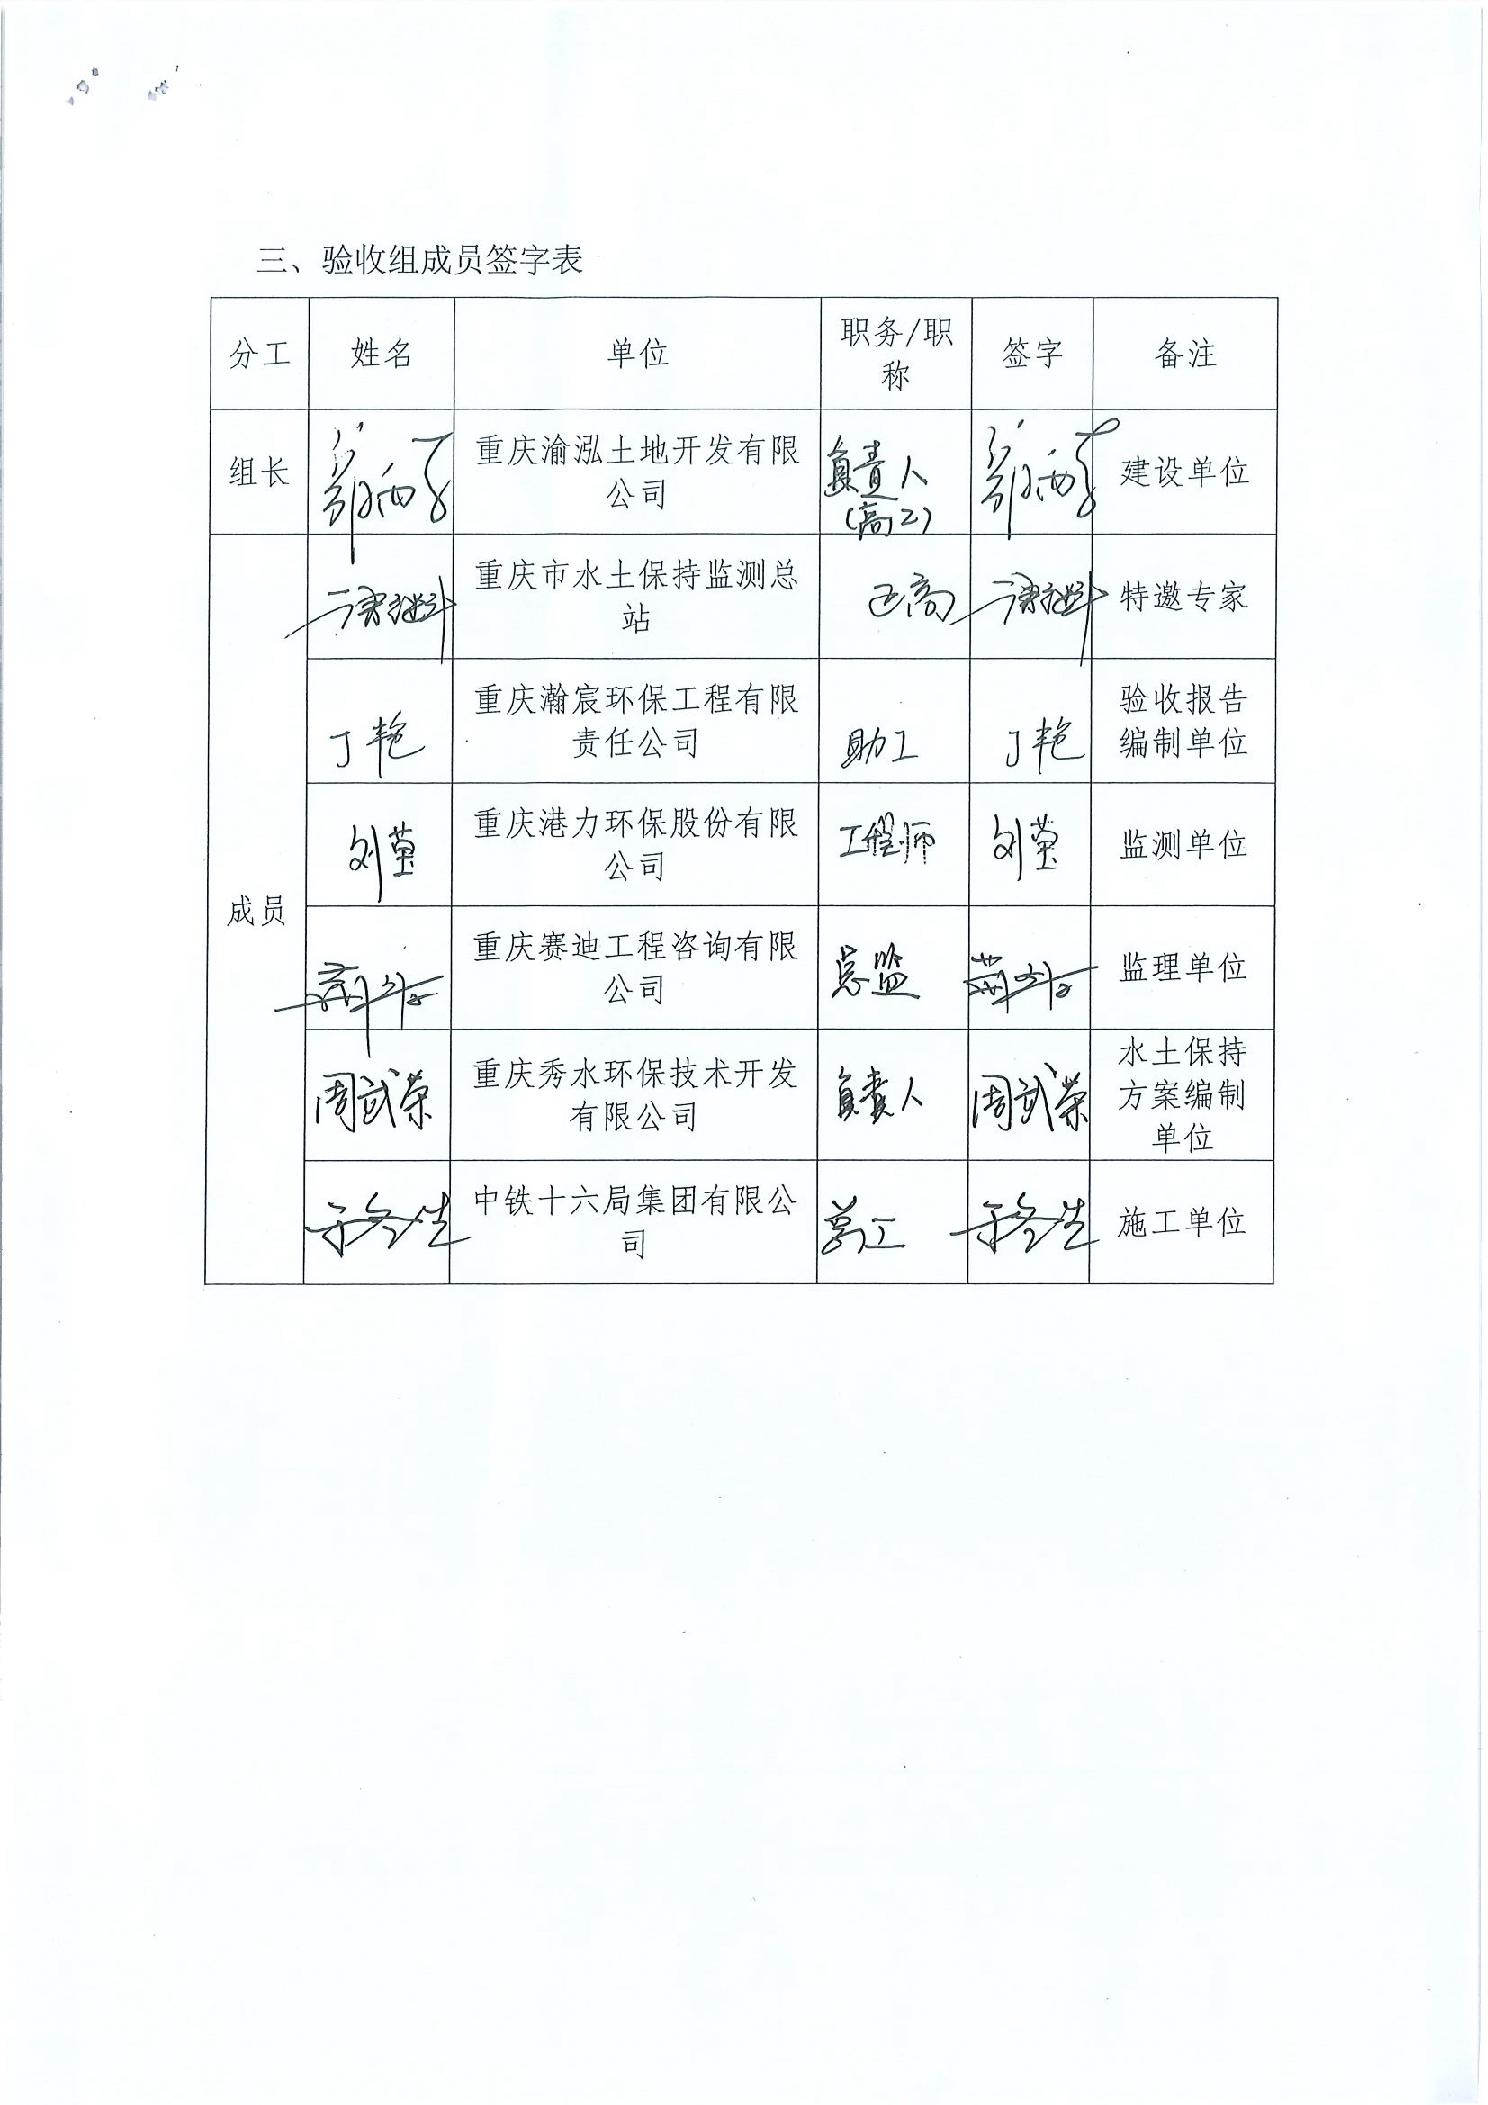 三、验收组成员签字表
分工 姓名 单位 职务/职称 签字 备注
组长 重庆渝泓土地开发有限公司 负责人(高工) 建设单位
成员
重庆市水土保持监测总站 正高 特邀专家
丁艳 重庆瀚宸环保工程有限责任公司 助工 丁艳 验收报告编制单位
刘莹 重庆港力环保股份有限公司 工程师 刘莹 监测单位
重庆赛迪工程咨询有限公司 总监 监理单位
周武荣 重庆秀水环保技术开发有限公司 负责人 周武荣 水土保持方案编制单位
中铁十六局集团有限公司 施工单位